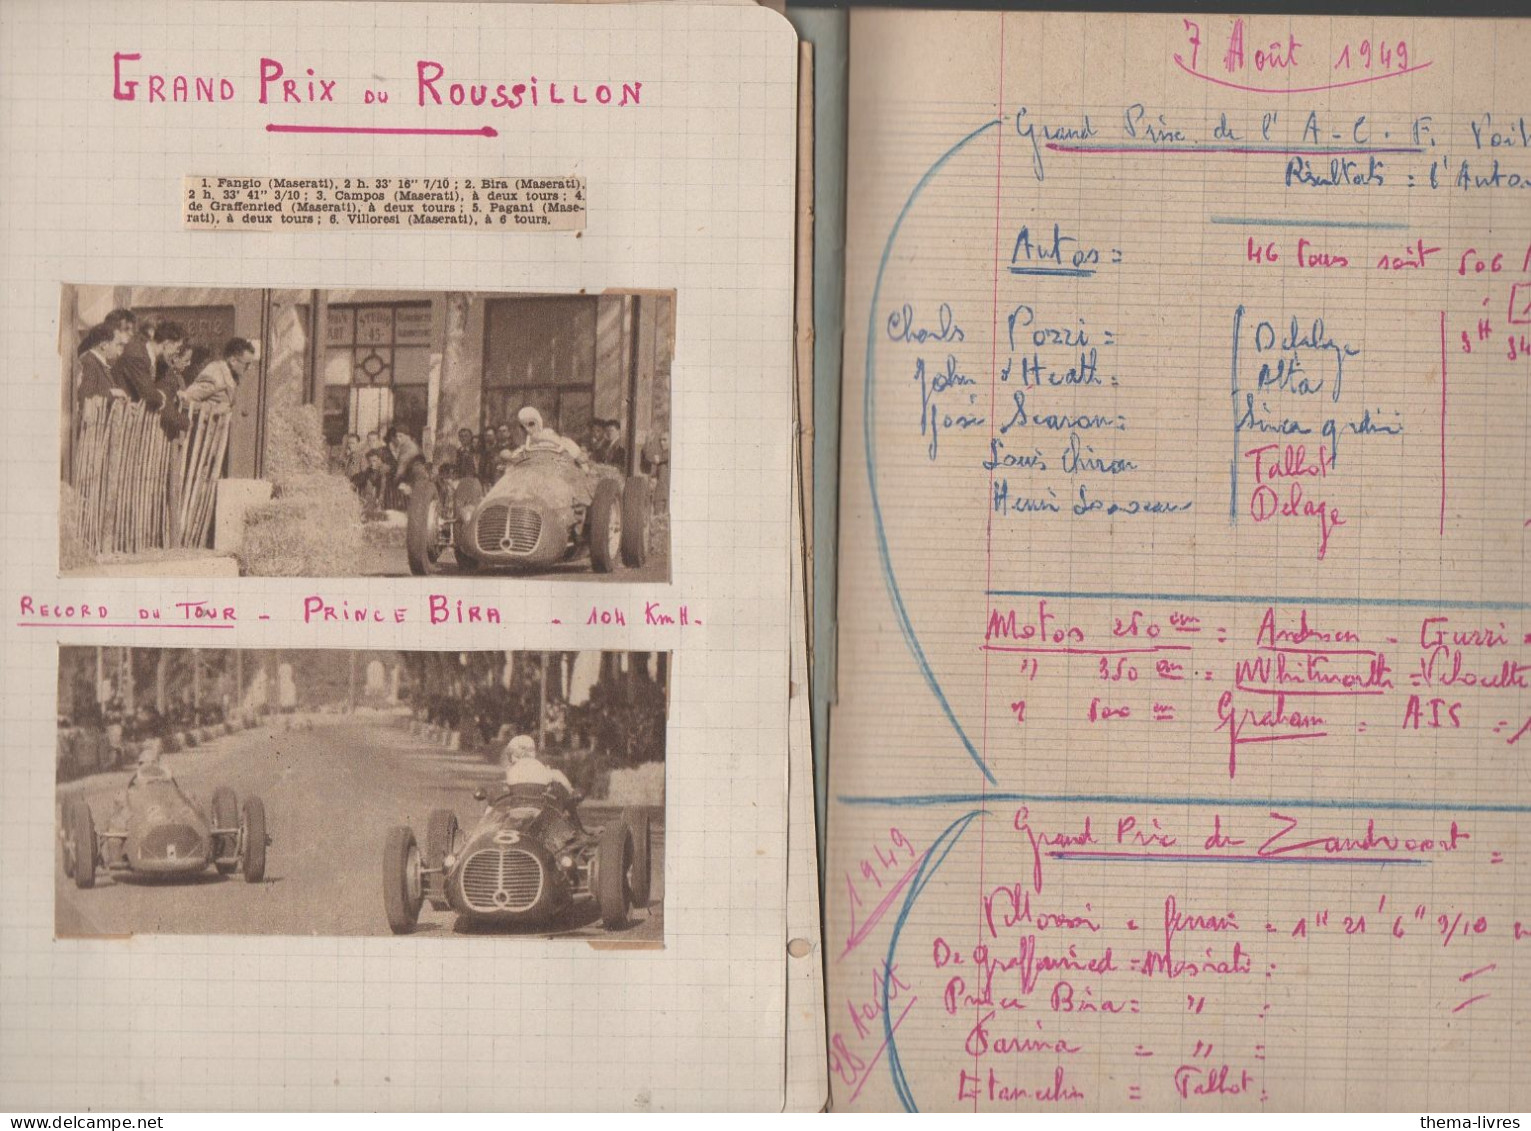 GRAND PRIX DU ROUSSILLON
1. Fangio (Maserati), 2 h. 33' 16" 7/10 ; 2. Bira (Maserati),
2 h. 33' 41" 3/10 ; 3. Campos (Maserati), à deux tours ; 4.
de Graffenried (Maserati), à deux tours ; 5. Pagani (Mase-
rati), à deux tours ; 6. Villoresi (Maserati), à 6 tours.
RECORD DU TOUR - PRINCE BIRA - 104 KmH.
8
7 Août 1949
Grand Prix de l'A-C.F.
Résultats =
Autos = 46 Tours soit 506
Charles Pozzi = Delahaye
John Heath = Alta
José Scaron = Simca gordini
Louis Chiron Talbot
Henri Louveau Delage
Motos 250 cm = Anderson - Guzzi =
" 350 cm = Whitworth = Velocette
" 500 cm Graham = AJS =
Grand Prix de Zandvoort =
1949
28 Août
Villoresi = Ferrari = 1H 21' 6" 9/10
De Graffenried = Maserati =
Prince Bira = " =
Farina = " =
Etancelin = Talbot =
thema-livres